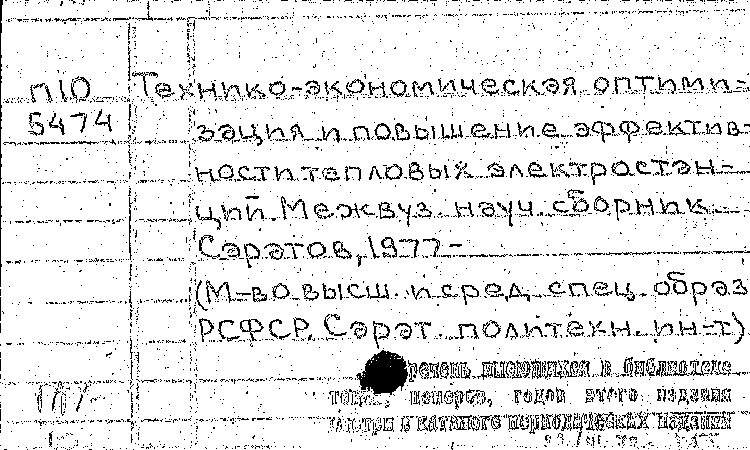 П10 Технико-экономическая оптими-
5474 зация и повышение эффектив-
ности тепловых электростан-
ций. Межвуз. науч. сборник.
Саратов, 1977-
(М-во высш. и сред. спец. образ
РСФСР. Сарат. политехн. ин-т)
имеющихся в библиотеке
томов, номеров, годов этого издания
смотри в каталоге периодических изданий